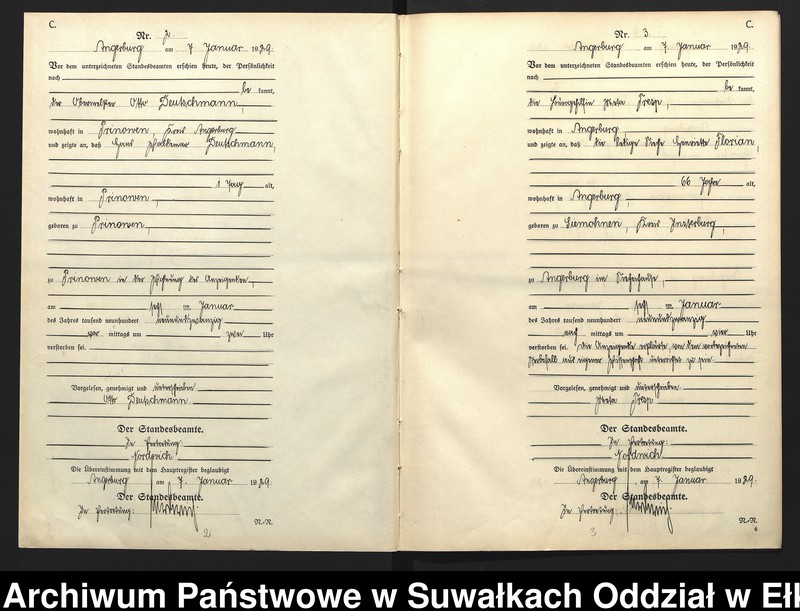 C.
Nr. 2.
Angerburg am 7. Januar 1929.
Vor dem unterzeichneten Standesbeamten erschien heute, der Persönlichkeit
nach
be kannt,
der Obermelker Otto Deutschmann,
wohnhaft in Prinowen, Kreis Angerburg
und zeigte an, daß Hans Deutschmann,
1 Tag alt,
wohnhaft in Prinowen,
geboren zu Prinowen,
zu Prinowen in der Wohnung des Anzeigenden,
am sechs ten Januar
des Jahres tausend neunhundert neunundzwanzig
vor mittags um zwei Uhr
verstorben sei.
Vorgelesen, genehmigt und unterschrieben
Otto Deutschmann
Der Standesbeamte.
In Vertretung:
Nordwich
Die Übereinstimmung mit dem Hauptregister beglaubigt
Angerburg am 7. Januar 1929.
Der Standesbeamte.
In Vertretung:
N-N
2
C.
Nr. 3.
Angerburg am 7. Januar 1929.
Vor dem unterzeichneten Standesbeamten erschien heute, der Persönlichkeit
nach
be kannt,
die
wohnhaft in Angerburg,
und zeigte an, daß die ledige Henriette Florian,
66 Jahre alt,
wohnhaft in Angerburg,
geboren zu Siemohnen, Kreis Insterburg,
zu Angerburg im Siechenhause,
am sechs ten Januar
des Jahres tausend neunhundert neunundzwanzig
nach mittags um vier Uhr
verstorben sei. Die Anzeigende erklärte, von dem vorbezeichneten
Sterbefall aus eigener Wissenschaft unterrichtet zu sein.
Vorgelesen, genehmigt und unterschrieben
Der Standesbeamte.
In Vertretung:
Nordwich
Die Übereinstimmung mit dem Hauptregister beglaubigt
Angerburg am 7. Januar 1929.
Der Standesbeamte.
In Vertretung:
N-N
6
3
Archiwum Państwowe w Suwałkach Oddział w Ełk